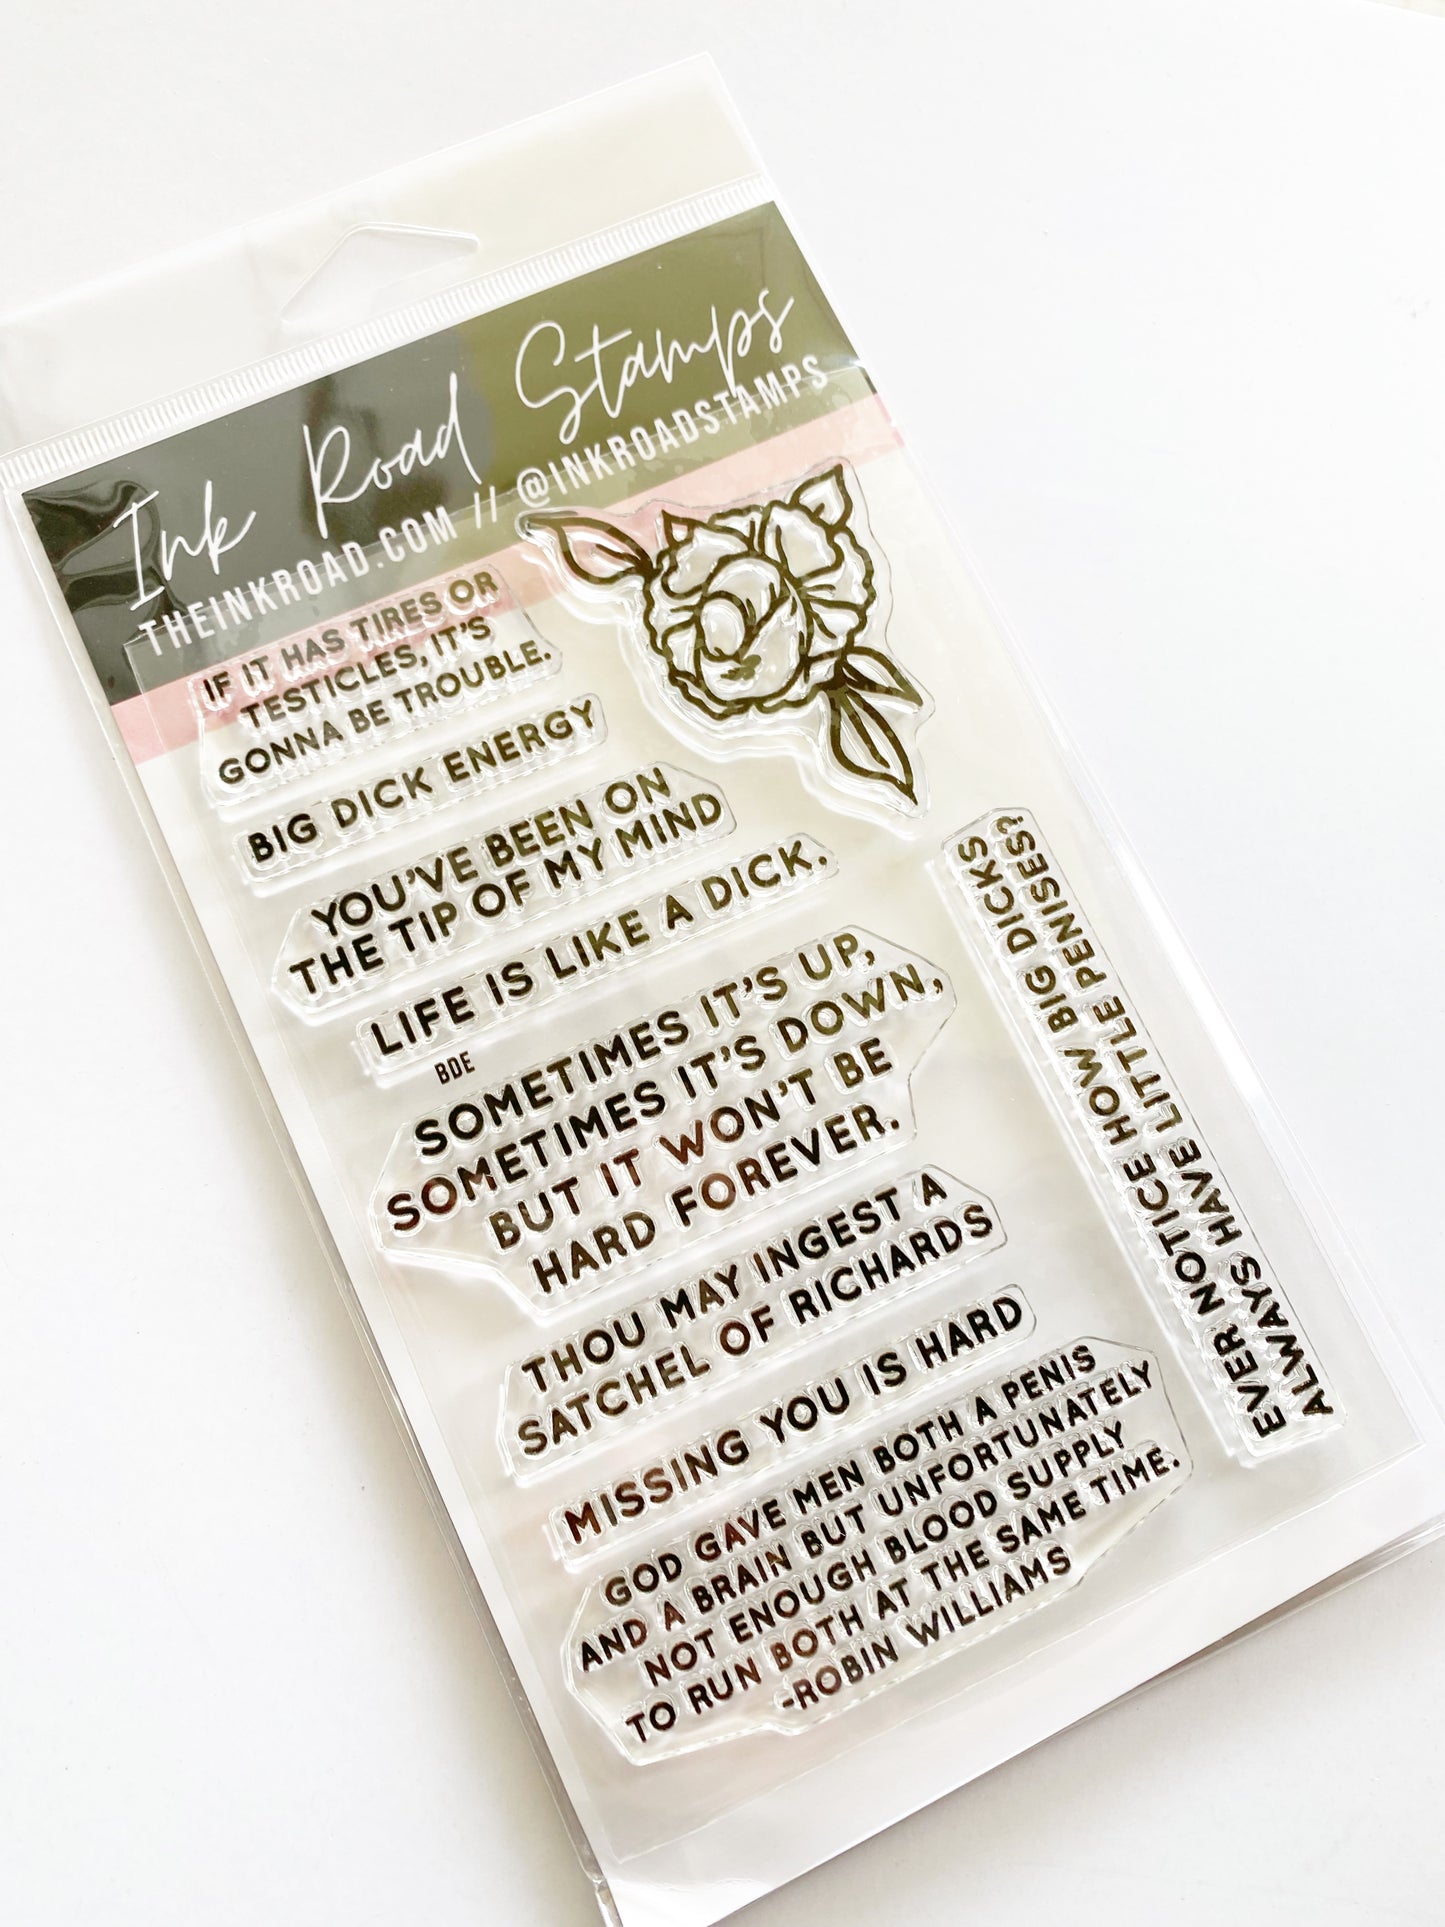 Ink Road Stamps
THEINKROAD.COM // @INKROADSTAMPS
IF IT HAS TIRES OR
TESTICLES, IT'S
GONNA BE TROUBLE.
BIG DICK ENERGY
YOU'VE BEEN ON
THE TIP OF MY MIND
LIFE IS LIKE A DICK.
BDE
SOMETIMES IT'S UP,
SOMETIMES IT'S DOWN,
BUT IT WON'T BE
HARD FOREVER.
THOU MAY INGEST A
SATCHEL OF RICHARDS
MISSING YOU IS HARD
GOD GAVE MEN BOTH A PENIS
AND A BRAIN BUT UNFORTUNATELY
NOT ENOUGH BLOOD SUPPLY
TO RUN BOTH AT THE SAME TIME.
-ROBIN WILLIAMS
EVER NOTICE HOW BIG DICKS
ALWAYS HAVE LITTLE PENISES?